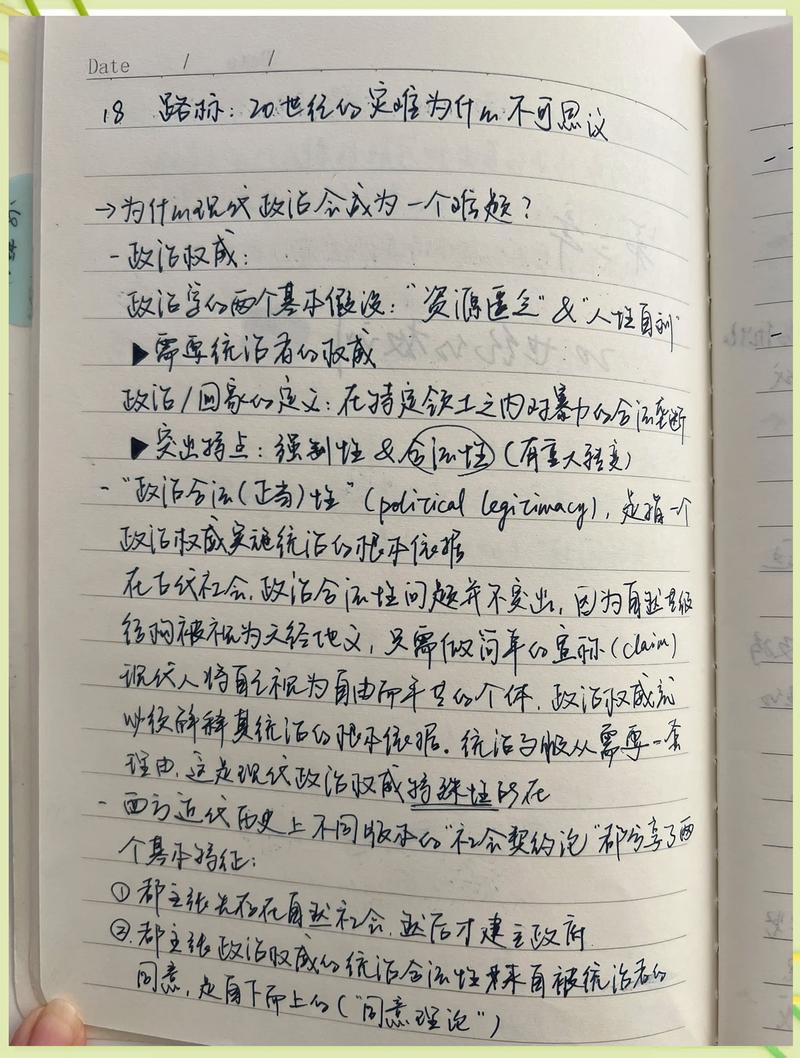 Date / /
18 路标：20世纪的灾难为什么不可思议
→为什么现代政治会成为一个难题？
-政治权威：
政治学的两个基本假设：“资源匮乏”&“人性自利”
▶需要统治者的权威
政治/国家的定义：在特定领土之内对暴力的合法垄断
▶突出特点：强制性 & 合法性（有重大转变）
-“政治合法(正当)性”（political legitimacy），是指一个
政治权威实施统治的根本依据
在古代社会，政治合法性问题并不突出，因为自然等级
结构被视为天经地义，只需做简单的宣称（claim）
现代人将自己视为自由而平等的个体，政治权威就
必须解释其统治的根本依据。统治与服从需要一套
理由，这是现代政治权威特殊性所在
-西方近代历史上不同版本的“社会契约论”都分享了两
个基本特征：
①都主张先存在自然社会，然后才建立政府
②都主张政治权威的统治合法性来自被统治者的
同意，是自下而上的（“同意理论”）